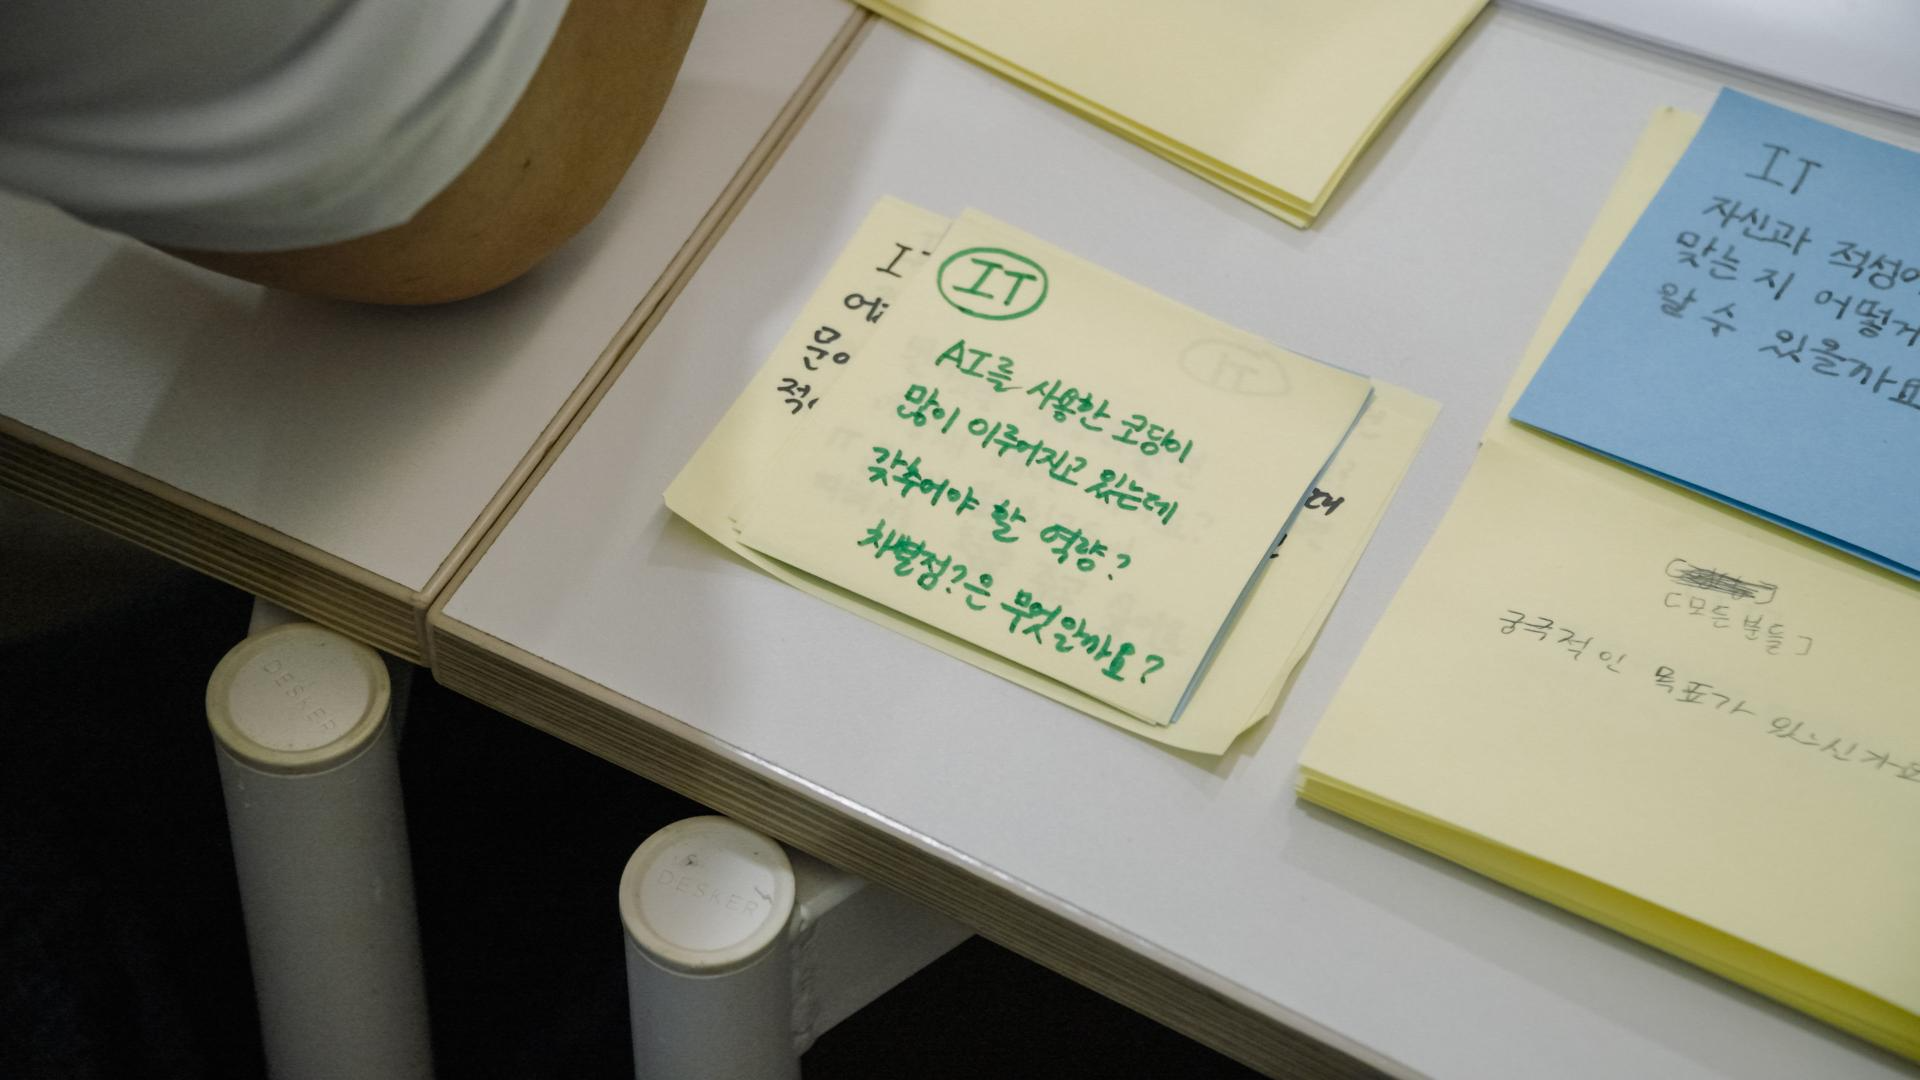 IT
AI를 사용한 코딩이
많이 이루어지고 있는데
갖추어야 할 역량?
차별점?은 무엇일까요?
IT
자신과 적성에
맞는 지 어떻게
알 수 있을까요
[모든 분들]
궁극적인 목표가 있으신가요
DESKER
DESKER